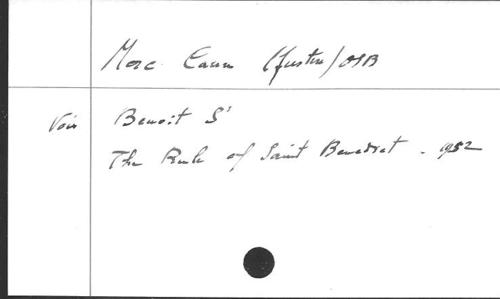 Mc Cann (Justin) OSB
Voir Benoit St
The Rule of Saint Benedict . 1952